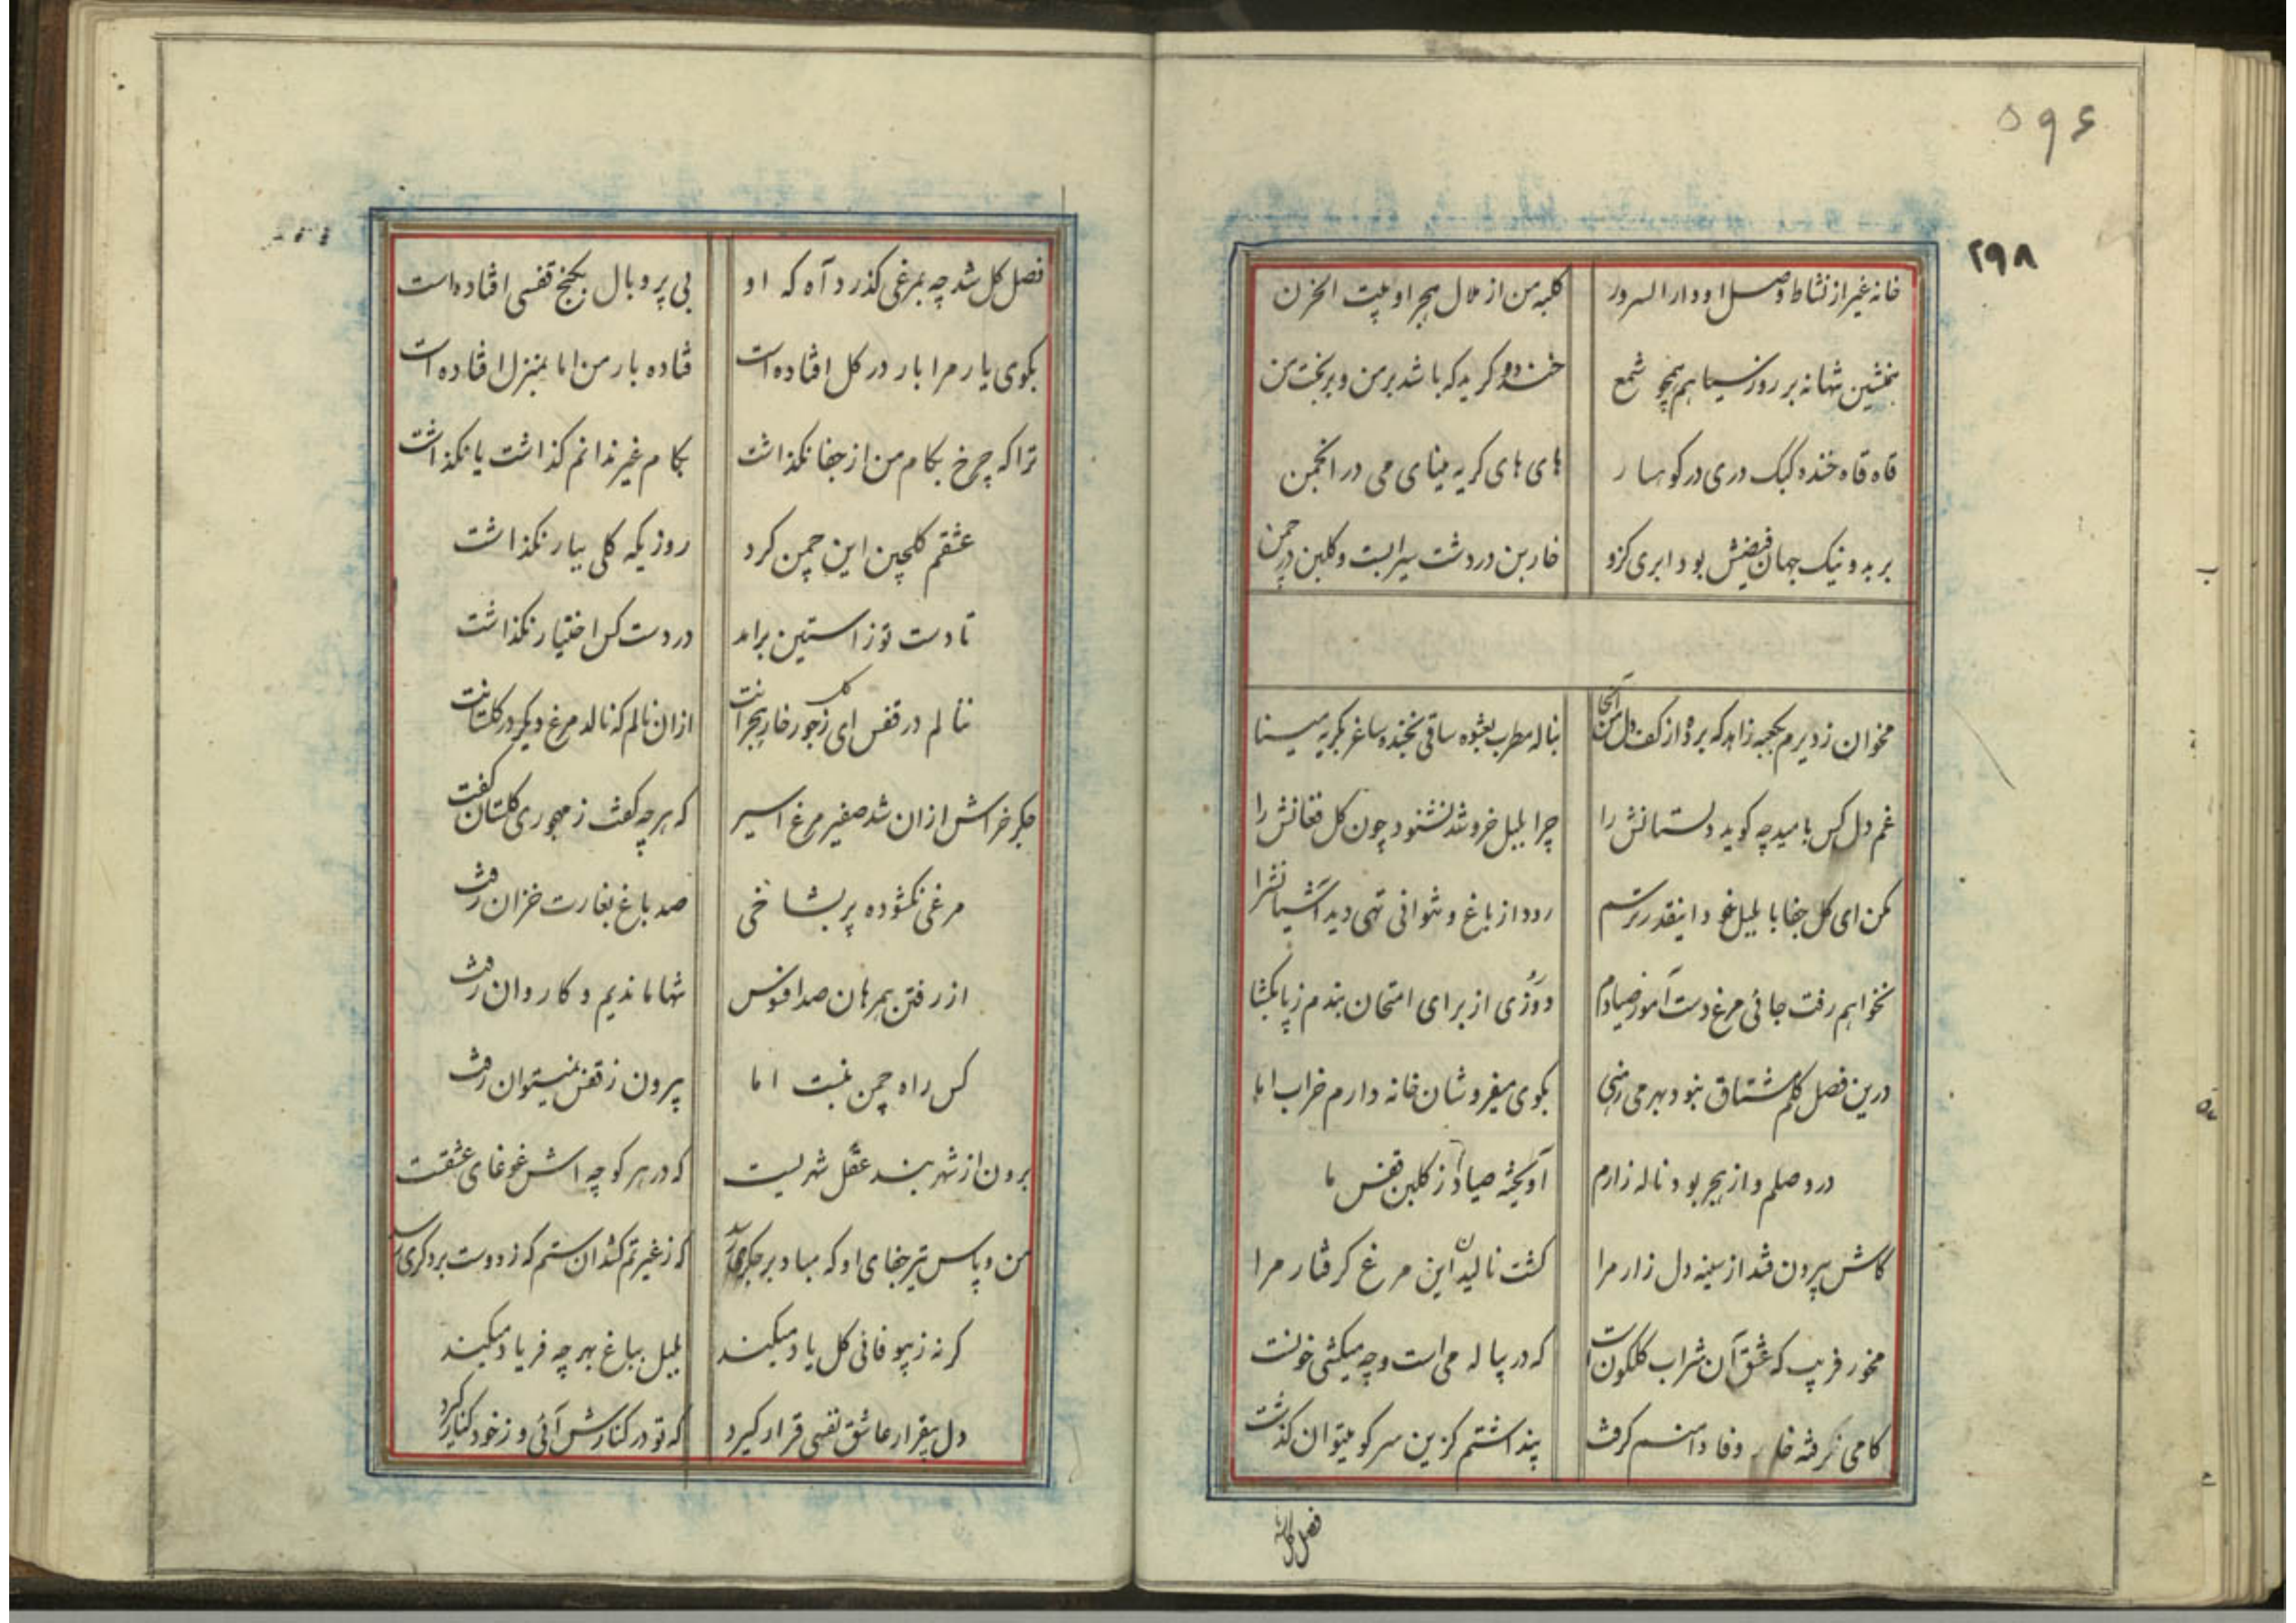 ۵۹۶
۲۹۸
خانه غیر از نشاط وصل او دار السرور کلبه من از ملال هجر او بیت الحزن
همنشین شبها نه بر روز سیاهم همچو شمع خنده و کریه که باشد بر من و بر بخت من
قاه قاه خنده کبک دری در کوهسار های های کریه مینای می در انجمن
بر بد و نیک جهان فیضش بود ابری کزو خاربن در دشت سیرابست و کلبن در چمن
مخوان ز دیرم بکعبه زاهد که برده از کف دل من آنجا بناله مطرب بعشوه ساقی بخنده ساغر بکریه مینا
غم دل کس بامید چه کوید دلستانش را چرا بلبل خروشد نشنود چون کل فغانش را
مکن ای کل جفا با بلبل خود اینقدر ترسم رود از باغ و نتوانی تهی دید آشیانشرا
نخواهم رفت جائی مرغ دست آموز صیادم دو روزی از برای امتحان بندم ز پا بکشا
درین فصل کلم مشتاق نبود بهر می رهنی بکوی میفروشان خانه دارم خراب اما
در وصلم و از هجر بود ناله زارم آویخته صیاد از کلبن قفس ما
کاش بیرون فتد از سینه دل زار مرا کشت نالیدن این مرغ کرفتار مرا
مخور فریب که عشق آن شراب کلکون است که در پیاله می است و چه میکشی خونست
کامی نکرفته خار وفا دامنم کرفت پنداشتم کزین سر کو میتوان کذشت
فصل کل
فصل کل شد چه بمرغی کذرد آه که او بی پر و بال بکنج قفسی افتاده است
بکوی یار مرا بار در کل افتاده است فتاده بار من اما بمنزل افتاده است
ترا که چرخ بکام من از جفا نکذاشت بکام غیر ندانم کذاشت یا نکذاشت
عشقم کلچین این چمن کرد روزیکه کلی ببار نکذاشت
تا دست تو ز استین برامد در دست کس اختیار نکذاشت
ننالم در قفس ای کل ز جور خار هجرانت ازان نالم که نالد مرغ دیکر در کلستانت
جکر خراش ازان شد صفیر مرغ اسیر که هر چه کفت ز مهجوری کلستان کفت
مرغی نکشوده پر بشاخی صد باغ بغارت خزان رفت
از رفتن همرهان صد افسوس تنها ماندیم و کاروان رفت
کس راه چمن نبست اما بیرون ز قفس نمیتوان رفت
برون از شهر بند عقل شهریست که در هر کوچه اش غوغای عشقست
من و پاس تیر جفای او که مباد بر جکری رسد که ز غیرتم کشد ان ستم که ز دوست بر دکری رسد
کر نه ز بیوفائی کل یاد میکند بلبل بباغ بهر چه فریاد میکند
دل بیقرار عاشق نفسی قرار کیرد که تو در کنارش آئی و ز خود کنار کیرد